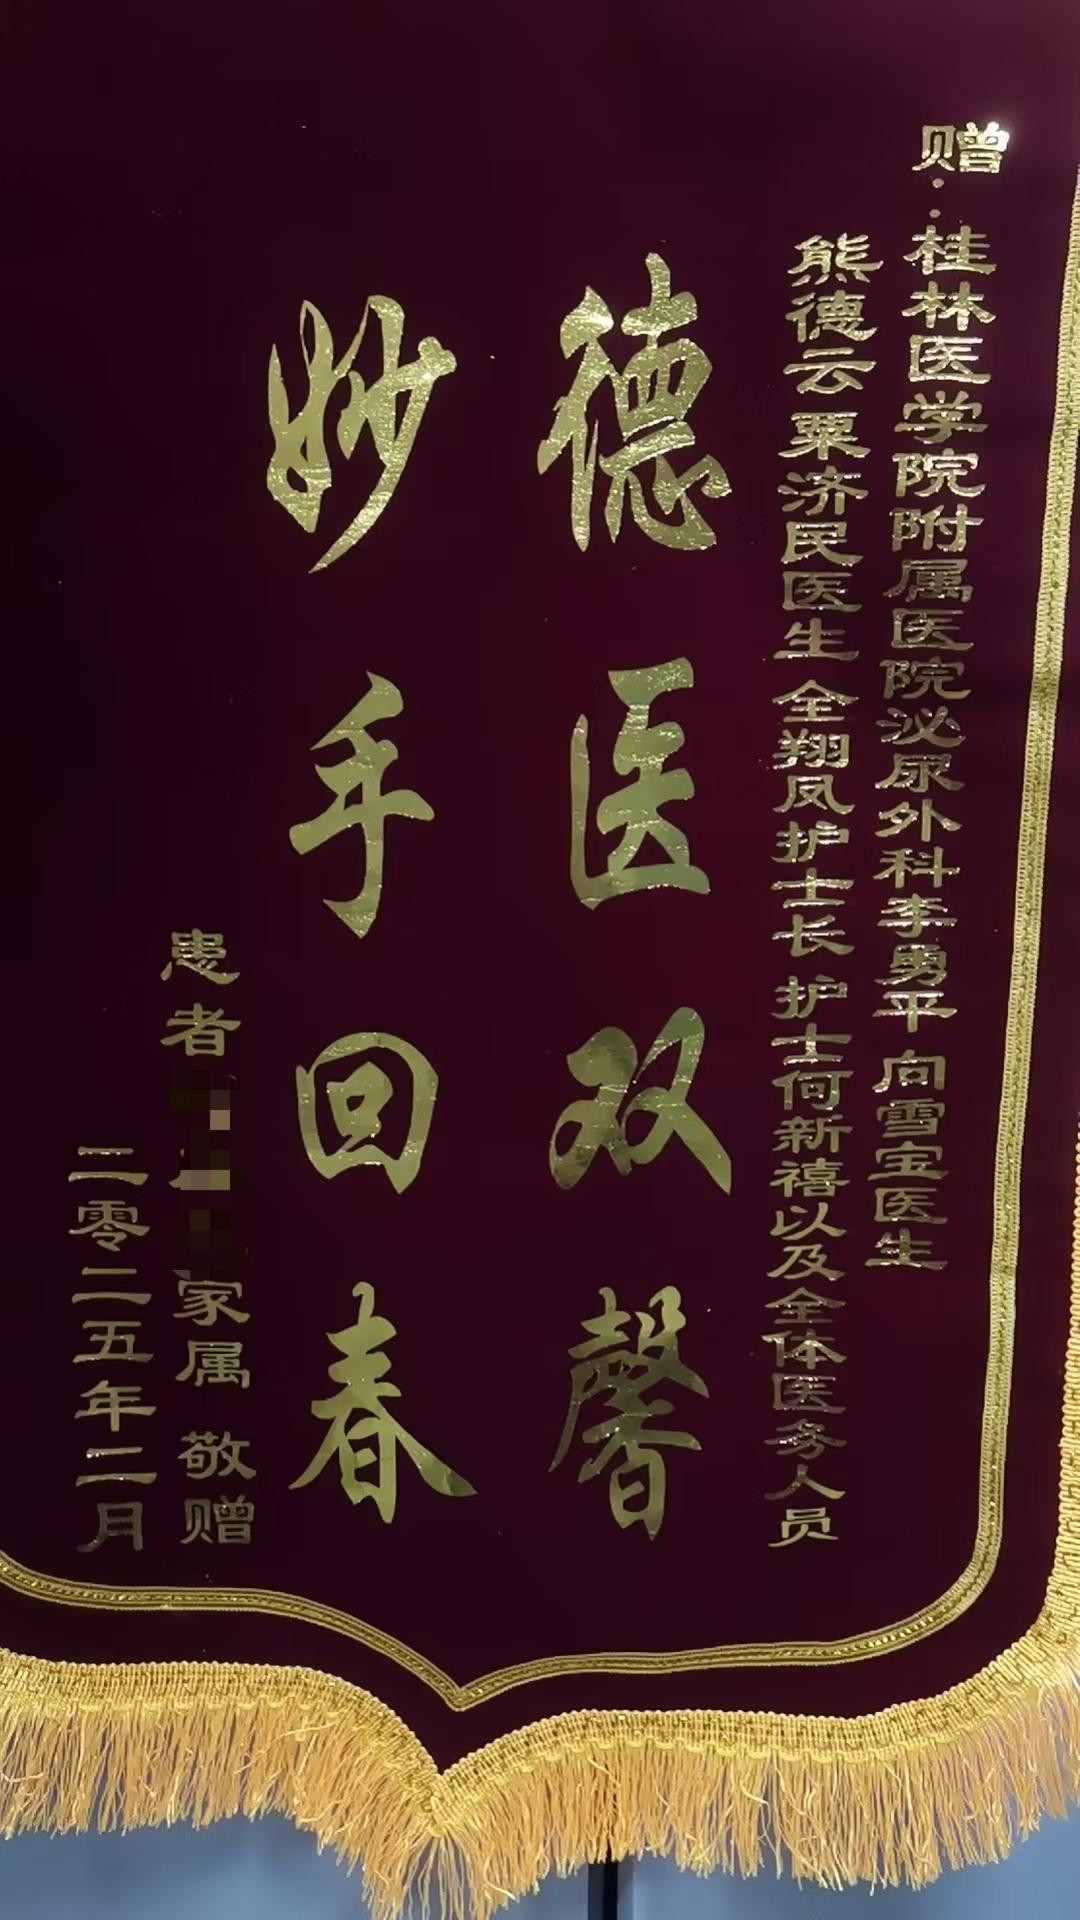 赠：桂林医学院附属医院泌尿外科李勇平 向雪宝医生
熊德云 粟济民医生 全翔凤护士长 护士何新禧以及全体医务人员
德医双馨
妙手回春
患者 家属 敬赠
二零二五年二月